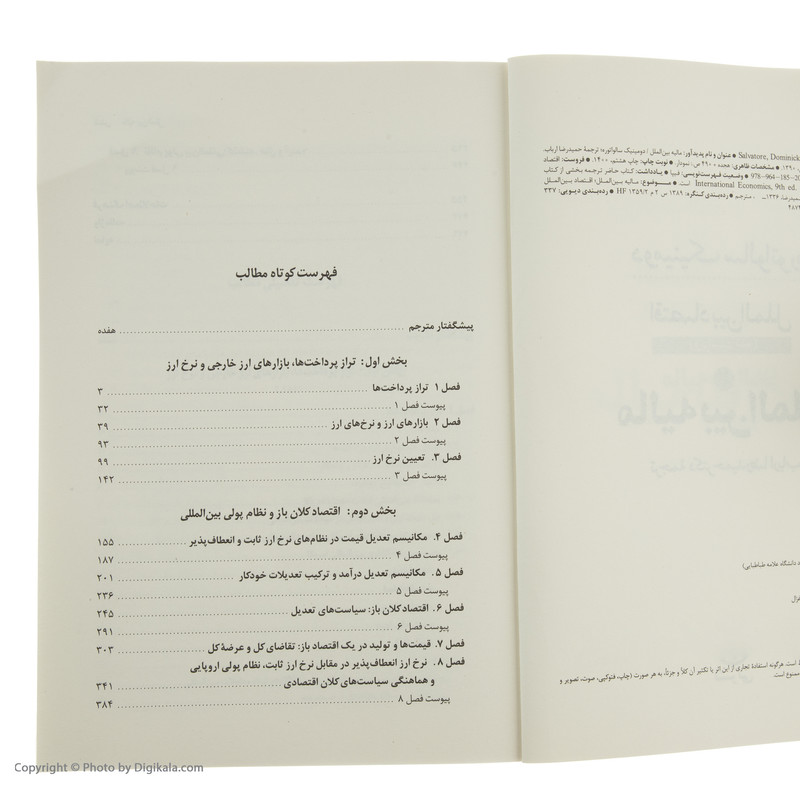 Salvatore, Dominick ● عنوان و نام پدیدآور: مالیه بین‌الملل / دومینیک سالواتوره؛ ترجمهٔ حمیدرضا ارباب.
۱۳۹۰. ● مشخصات ظاهری: هجده، ۴۹۰ ص.: نمودار. ● نوبت چاپ: چاپ هشتم، ۱۴۰۰. ● فروست: اقتصاد
۹۷۸-۹۶۴-۱۸۵-۲۰ ● وضعیت فهرست‌نویسی: فیپا ● یادداشت: کتاب حاضر ترجمه بخشی از کتاب
International Economics, 9th ed. است. ● موضوع: مالیه بین‌الملل؛ اقتصاد بین‌الملل
حمیدرضا، ۱۳۳۶ـ ، مترجم ● رده‌بندی کنگره: ۱۳۸۹ س ۲ م HF ۱۳۵۹/۲ ● رده‌بندی دیویی: ۳۳۷
دانشگاه علامه طباطبایی)
است. هرگونه استفادهٔ تجاری از این اثر یا تکثیر آن کلاً و جزئاً، به هر صورت (چاپ، فتوکپی، صوت، تصویر و
ممنوع است.
فهرست کوتاه مطالب
پیشگفتار مترجم ........ هفده
بخش اول: تراز پرداخت‌ها، بازارهای ارز خارجی و نرخ ارز
فصل ۱ تراز پرداخت‌ها ........ ۳
پیوست فصل ۱ ........ ۳۲
فصل ۲ بازارهای ارز و نرخ‌های ارز ........ ۳۹
پیوست فصل ۲ ........ ۹۳
فصل ۳. تعیین نرخ ارز ........ ۹۹
پیوست فصل ۳ ........ ۱۴۲
بخش دوم: اقتصاد کلان باز و نظام پولی بین‌المللی
فصل ۴. مکانیسم تعدیل قیمت در نظام‌های نرخ ارز ثابت و انعطاف‌پذیر ........ ۱۵۵
پیوست فصل ۴ ........ ۱۸۷
فصل ۵. مکانیسم تعدیل درآمد و ترکیب تعدیلات خودکار ........ ۲۰۱
پیوست فصل ۵ ........ ۲۳۶
فصل ۶. اقتصاد کلان باز: سیاست‌های تعدیل ........ ۲۴۵
پیوست فصل ۶ ........ ۲۹۱
فصل ۷. قیمت‌ها و تولید در یک اقتصاد باز: تقاضای کل و عرضهٔ کل ........ ۳۰۳
فصل ۸. نرخ ارز انعطاف‌پذیر در مقابل نرخ ارز ثابت، نظام پولی اروپایی
و هماهنگی سیاست‌های کلان اقتصادی ........ ۳۴۱
پیوست فصل ۸ ........ ۳۸۴
Copyright © Photo by Digikala.com